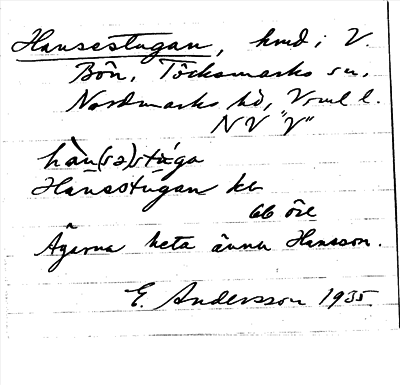 Hansestugan, hmd i V.
Bön, Töcksmarks sn,
Nordmarks hd, Vrml l.
NV "V"
hàn(sə)stúga
Hansstúgan kb
66 öre
Ägarna heta ännu Hansson.
E. Andersson 1935